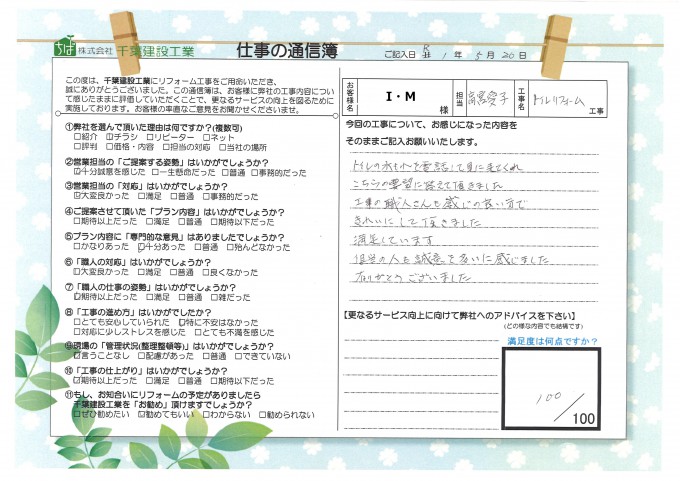 ちば 株式会社 千葉建設工業 仕事の通信簿 ご記入日 R 1年 5月 20日
この度は、千葉建設工業にリフォーム工事をご用命いただき、
誠にありがとうございました。この通信簿は、お客様の工事内容につい
て感じたままに評価していただくことで、更なるサービスの向上を図るために
実施しております。お客様の率直なご意見をお聞かせくださいませ。
①弊社を選んで頂いた理由は何ですか?(複数可)
□紹介 ☑チラシ □リピーター □ネット
□評判 □価格・内容 □担当の対応 □当社の場所
②営業担当の「ご提案する姿勢」はいかがでしょうか?
☑十分誠意を感じた □一生懸命だった □普通 □事務的だった
③営業担当の「対応」はいかがでしょうか?
☑大変良かった □満足 □普通 □事務的だった
④ご提案させて頂いた「プラン内容」はいかがでしょうか?
□期待以上だった □満足 □普通 □期待以下だった
⑤プラン内容に「専門的な意見」はありましたでしょうか?
□かなりあった ☑十分あった □普通 □殆んどなかった
⑥「職人の対応」はいかがでしょうか?
☑大変良かった □満足 □普通 □良くなかった
⑦「職人の仕事の姿勢」はいかがでしょうか?
☑期待以上だった □満足 □普通 □雑だった
⑧「工事の進め方」はいかがでしたか?
□とても安心していられた ☑特に不安はなかった
□対応に少しストレスを感じた □とても不満を感じた
⑨現場の「管理状況(整理整頓等)」はいかがでしょうか?
☑言うことなし □配慮があった □普通 □できていない
⑩「工事の仕上がり」はいかがでしょうか?
☑期待以上だった □満足 □普通 □期待以下だった
⑪もし、お知合いにリフォームの予定がありましたら
千葉建設工業を「お勧め」頂けますでしょうか?
□ぜひ勧めたい ☑勧めてもいい □わからない □勧められない
お客様名 I・M 様 担当 工事名 トイレリフォーム 工事
今回の工事について、お感じになった内容を
そのままご記入お願いいたします。
トイレの水もれを電話して見に来てくれ
こちらの要望に答えて頂きました
工事の職人さんも感じの良い方で
きれいにして頂きました
満足しています
担当の人も誠意を多いに感じました
ありがとうございました
【更なるサービス向上に向けて弊社へのアドバイスを下さい】
(どの様な内容でも結構です)
満足度は何点ですか?
100/100